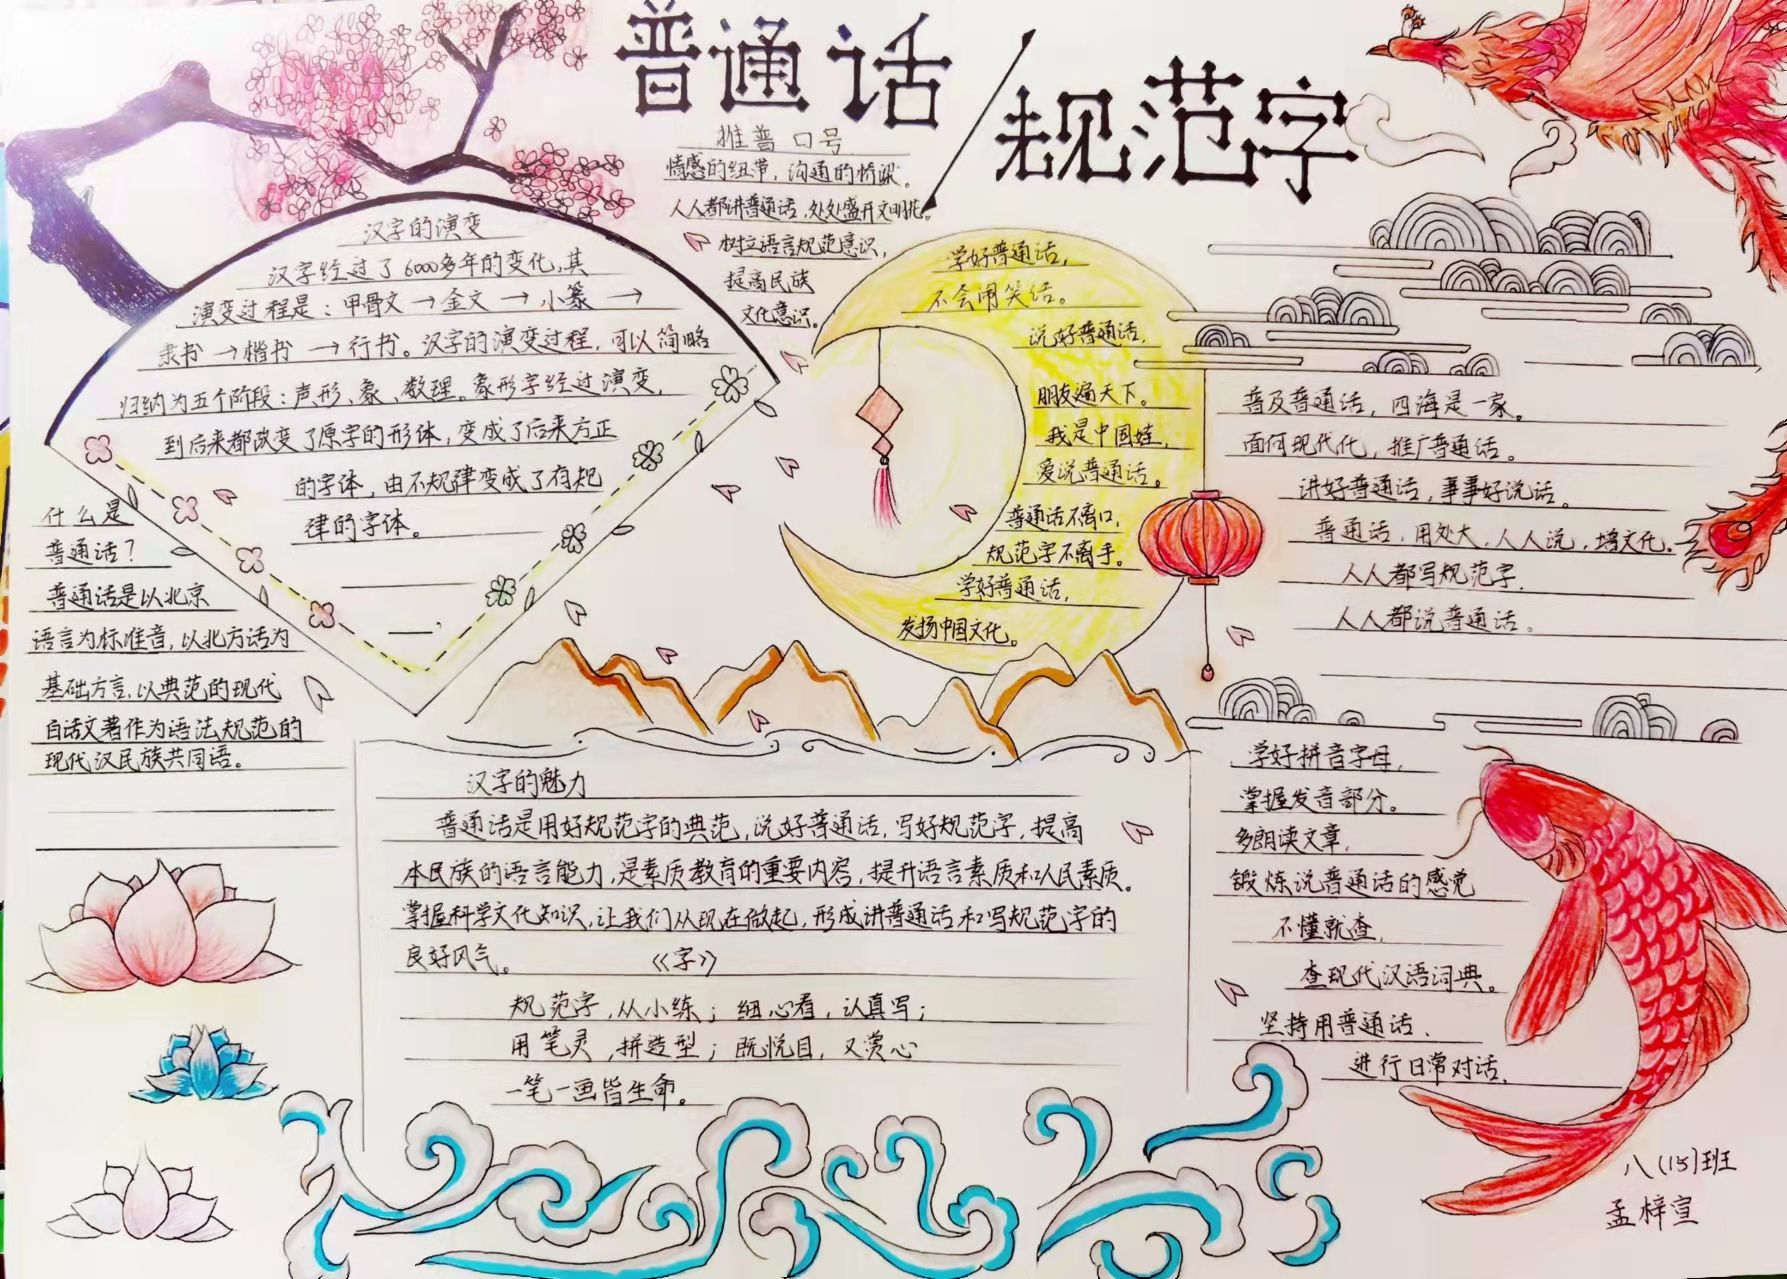 普通话/规范字
推普口号
情感的纽带，沟通的桥梁。
人人都讲普通话，处处盛开文明花。
树立语言规范意识，
提高民族
文化意识。
汉字的演变
汉字经过了6000多年的变化，其
演变过程是：甲骨文→金文→小篆→
隶书→楷书→行书。汉字的演变过程，可以简略
归纳为五个阶段：声形、象、数理。象形字经过演变，
到后来都改变了原字的形体，变成了后来方正
的字体，由不规律变成了有规
律的字体。
什么是
普通话？
普通话是以北京
语言为标准音，以北方话为
基础方言，以典范的现代
白话文著作为语法规范的
现代汉民族共同语。
学好普通话，
不会闹笑话。
说好普通话，
朋友遍天下。
我是中国娃，
爱说普通话。
普通话不离口，
规范字不离手。
学好普通话，
发扬中国文化。
普及普通话，四海是一家。
面向现代化，推广普通话。
讲好普通话，事事好说话。
普通话，用处大，人人说，增文化。
人人都写规范字，
人人都说普通话。
汉字的魅力
普通话是用好规范字的典范，说好普通话，写好规范字，提高
本民族的语言能力，是素质教育的重要内容，提升语言素质和人民素质。
掌握科学文化知识，让我们从现在做起，形成讲普通话和写规范字的
良好风气。
《字》
规范字，从小练；细心看，认真写；
用笔灵，拼造型；既悦目，又赏心
一笔一画皆生命。
学好拼音字母，
掌握发音部分。
多朗读文章，
锻炼说普通话的感觉
不懂就查，
查现代汉语词典。
坚持用普通话、
进行日常对话，
八(15)班
孟梓宣